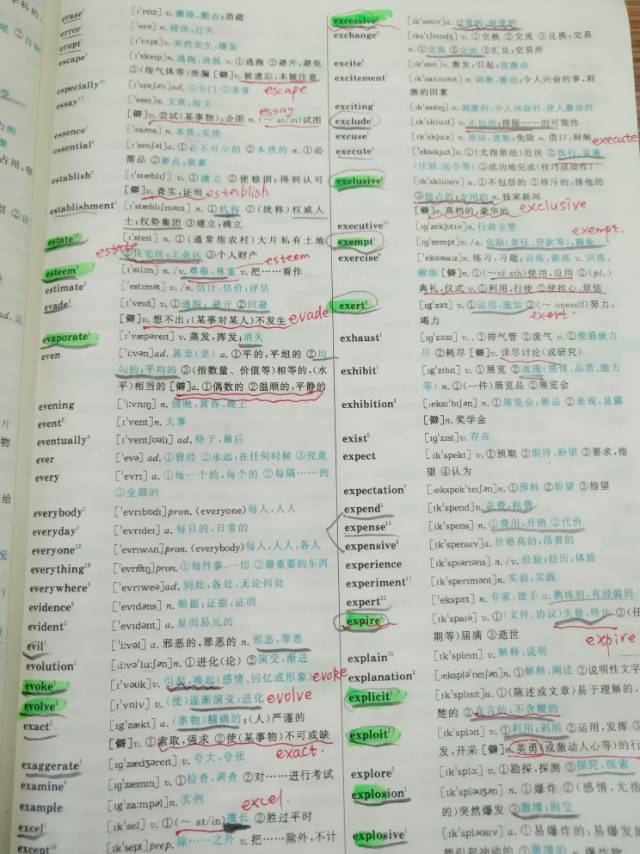 erase ['ɪreɪz] v. 擦掉, 删去; 消磁
error ['erə] n. 错误, 过失
erupt [ɪ'rʌpt] v. 突然发生, 爆发
escape [ɪ'skeɪp] v. 逃跑, 逃脱 v. ①逃跑 ②避开, 避免
③(指气体等)泄漏 [僻]v. 被遗忘, 未被注意
especially [ɪ'speʃəlɪ] ad. ①专门 ②非常 escape
essay ['eseɪ] n. 文章, 短文 essay
[僻]v. 尝试(某事物); 企图 n. (~ at/in)试图
essence ['esəns] n. 本质, 实质
essential [ɪ'senʃəl] a. ①必不可少的 ②本质的 n. ①必
需品 ②要点; 要素
establish [ɪ'stæblɪʃ] v. ①建立 ②使稳固; 得到认可
[僻]v. 查实, 证明 establish
establishment n. ①机构 ②(统称)权威人
士; 权势集团 ③建立; 确立
estate [ɪ'steɪt] n. ①(通常指农村)大片私有土地
estate ②住宅区; 工业区 ③个人财产
esteem [ɪ'stiːm] n. /v. 尊敬, 尊重 v. 把……看作 esteem
estimate ['estɪmət] v. /n. 估计, 估价; 评价
evade [ɪ'veɪd] v. ①逃脱; 避开 ②回避
[僻]v. 想不出; (某事对某人)不发生 evade
evaporate [ɪ'væpəreɪt] v. 蒸发, 挥发; 消失
even ['iːvən] ad. 甚至(更) a. ①平的, 平坦的 ②均
匀的; 平均的 ③(指数量、价值等)相等的, (水
平)相当的 [僻]a. ①偶数的 ②温顺的, 平静的
evening ['iːvnɪŋ] n. 傍晚, 黄昏, 晚上
event [ɪ'vent] n. 大事
eventually [ɪ'ventʃʊəlɪ] ad. 终于, 最后
ever ['evə] ad. ①曾经 ②永远; 在任何时候 ③究竟
every ['evrɪ] a. ①每一个的, 每个的 ②每隔……的
③全部的
everybody ['evrɪbɒdɪ] pron. (everyone)每人, 人人
everyday ['evrɪdeɪ] a. 每日的, 日常的
everyone ['evrɪwʌn] pron. (everybody)每人, 人人, 各人
everything ['evrɪθɪŋ] pron. ①每件事, 一切 ②最重要的东西
everywhere ['evrɪweə] ad. 到处, 各处, 无论何处
evidence ['evɪdəns] n. 根据; 证据; 证明
evident ['evɪdənt] a. 显而易见的
evil ['iːvəl] a. 邪恶的, 罪恶的 n. 邪恶, 罪恶
evolution [ˌiːvə'luːʃən] n. ①进化(论) ②演变, 渐进
evoke [ɪ'vəʊk] v. 引起, 唤起(感情, 回忆或形象) evoke
evolve [ɪ'vɒlv] v. (使)逐渐演变; 进化 evolve
exact [ɪg'zækt] a. (事物)精确的; (人)严谨的
[僻]v. ①索取, 强求 ②使(某事物)不可或缺
exact.
exaggerate [ɪg'zædʒəreɪt] v. 夸大, 夸张
examine [ɪg'zæmɪn] v. ①检查, 调查 ②对……进行考试
example [ɪg'zɑːmpəl] n. 实例 excel.
excel [ɪk'sel] v. ①(~ at/in)擅长 ②胜过平时
except [ɪk'sept] prep. 除……之外 v. 把……除外, 不计
excessive [ɪk'sesɪv] a. 过度的; 极度的
exchange [ɪks'tʃeɪndʒ] v. ①交换 ②交流 ③兑换; 交易
n. ①交换 ②交流 ③汇兑; 交易所
excite [ɪk'saɪt] v. 激发; 引起; 使激动
excitement [ɪk'saɪtmənt] n. 刺激, 激动; 令人兴奋的事, 刺
激的因素
exciting [ɪk'saɪtɪŋ] a. 刺激的, 令人兴奋的, 使人激动的
exclude [ɪk'skluːd] v. 不包括; 排除……的可能性
excuse [ɪk'skjuːz] v. 原谅, 宽恕; 免除 n. 借口, 辩解
execute ['eksɪkjuːt] v. ①(尤指依法)处决 ②执行, 实施 execute
(计划, 法令等) ③成功地完成(技巧或动作)
exclusive [ɪk'skluːsɪv] a. ①不包括的 ②排斥的; 排他的
③独占的; 专用的 n. 独家新闻
[僻]a. 高档的, 豪华的 exclusive
executive [ɪg'zekjʊtɪv] n. 行政主管 exempt.
exempt [ɪg'zempt] v. /a. 免除(责任, 贷款等), 豁免
exercise ['eksəsaɪz] n. 练习, 习题; 训练, 锻炼 v. 训练,
锻炼 [僻]n. ①(~of sth)使用, 应用 ②(pl.)
典礼, 仪式 v. ①利用, 行使 ②使担心, 烦恼
exert [ɪg'zɜːt] v. ①运用, 施加 ②(~ oneself)努力,
竭力 exert.
exhaust [ɪg'zɔːst] n. ①排气管 ②废气 v. ①使筋疲力
尽 ②耗尽 [僻]v. 详尽讨论(或研究)
exhibit [ɪg'zɪbɪt] v. ①展览 ②表现(感情, 品质, 能力
等) n. ①(一件)展览品 ②展览会
exhibition [ˌeksɪ'bɪʃən] n. ①展览会; 展品 ②表现, 显露
[僻]n. 奖学金
exist [ɪg'zɪst] v. 存在
expect [ɪk'spekt] v. ①预期 ②期待, 盼望 ③要求, 指
望 ④认为
expectation [ˌekspek'teɪʃən] n. ①预料 ②盼望 ③指望
expend [ɪk'spend] v. 花费; 耗费
expense [ɪk'spens] n. ①费用, 开销 ②代价
expensive [ɪk'spensɪv] a. 价格高的; 昂贵的
experience [ɪk'spɪərɪəns] n. /v. 经验; 经历; 体验
experiment [ɪk'sperɪmənt] n. 实验, 实践
expert ['ekspɜːt] n. 专家, 能手 a. 熟练的, 有经验的
expire [ɪk'spaɪə] v. ①(文件, 协议)失效, 终止 ②(任
期等)届满 ③逝世 expire
explain [ɪk'spleɪn] v. 解释, 说明
explanation [ˌeksplə'neɪʃən] n. ①解释, 阐述 ②说明性文字
explicit [ɪk'splɪsɪt] a. ①(陈述或文章)易于理解的,
楚的 ②直言的; 不含糊的
exploit [ɪk'splɔɪt] v. ①利用; 剥削 ②运用, 发挥 ③
发, 开采 [僻]n. 英勇(或激动人心等)的行
explore [ɪk'splɔː] v. ①勘探, 探测 ②探究, 探索
explosion [ɪk'spləʊʒən] n. ①爆炸 ②(感情, 尤指
的)突然爆发 ③激增; 剧变
explosive [ɪk'spləʊsɪv] a. ①易爆炸的; 易爆